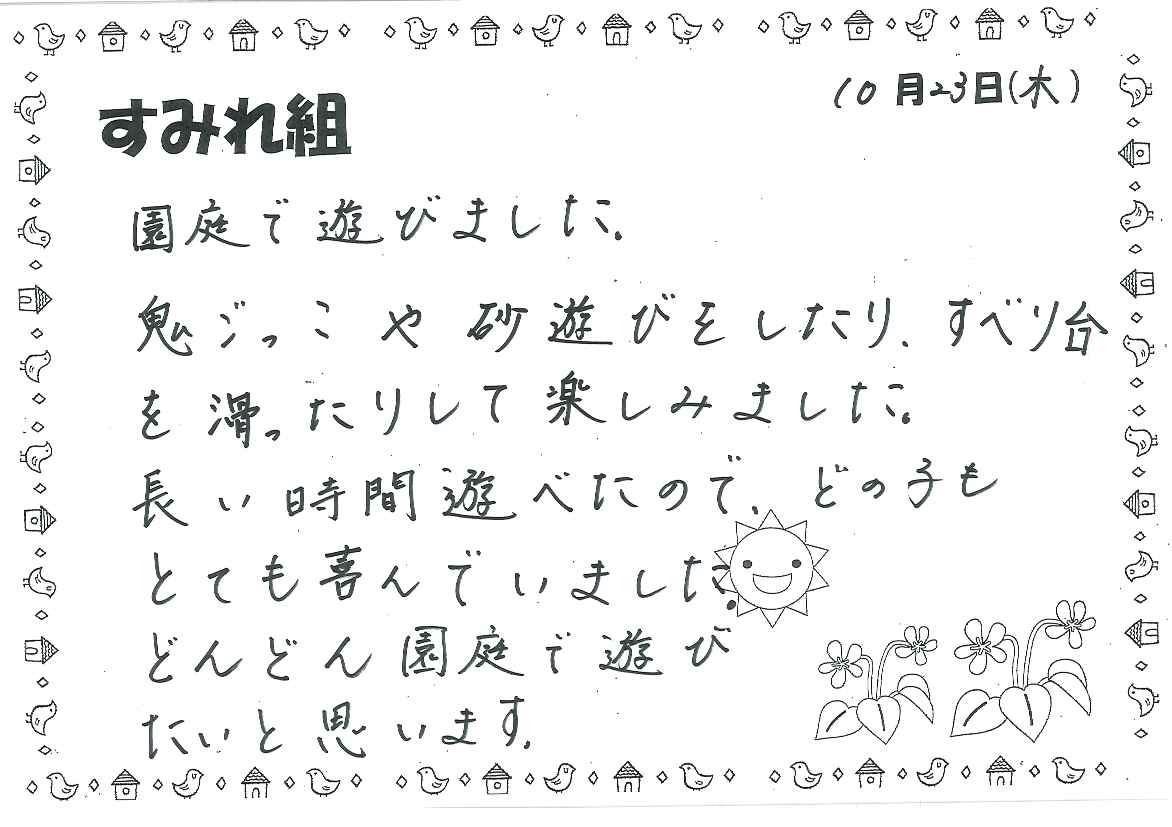 10月23日(木)
すみれ組
園庭で遊びました。
鬼ごっこや砂遊びをしたり、すべり台
を滑ったりして楽しみました。
長い時間遊べたので、どの子も
とても喜んでいました。
どんどん園庭で遊び
たいと思います。